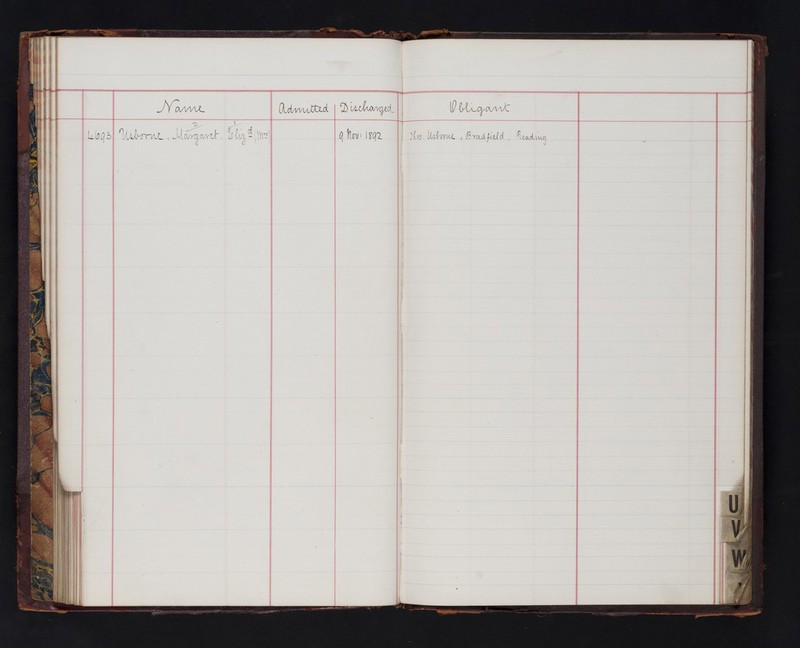 Name Admitted Discharged Obligant
4693 Usborne, Margaret 2 Eliz^th 1 (Mrs) 9 Nov: 1892 Thos. Usborne, Bradfield, Reading
U
V
W